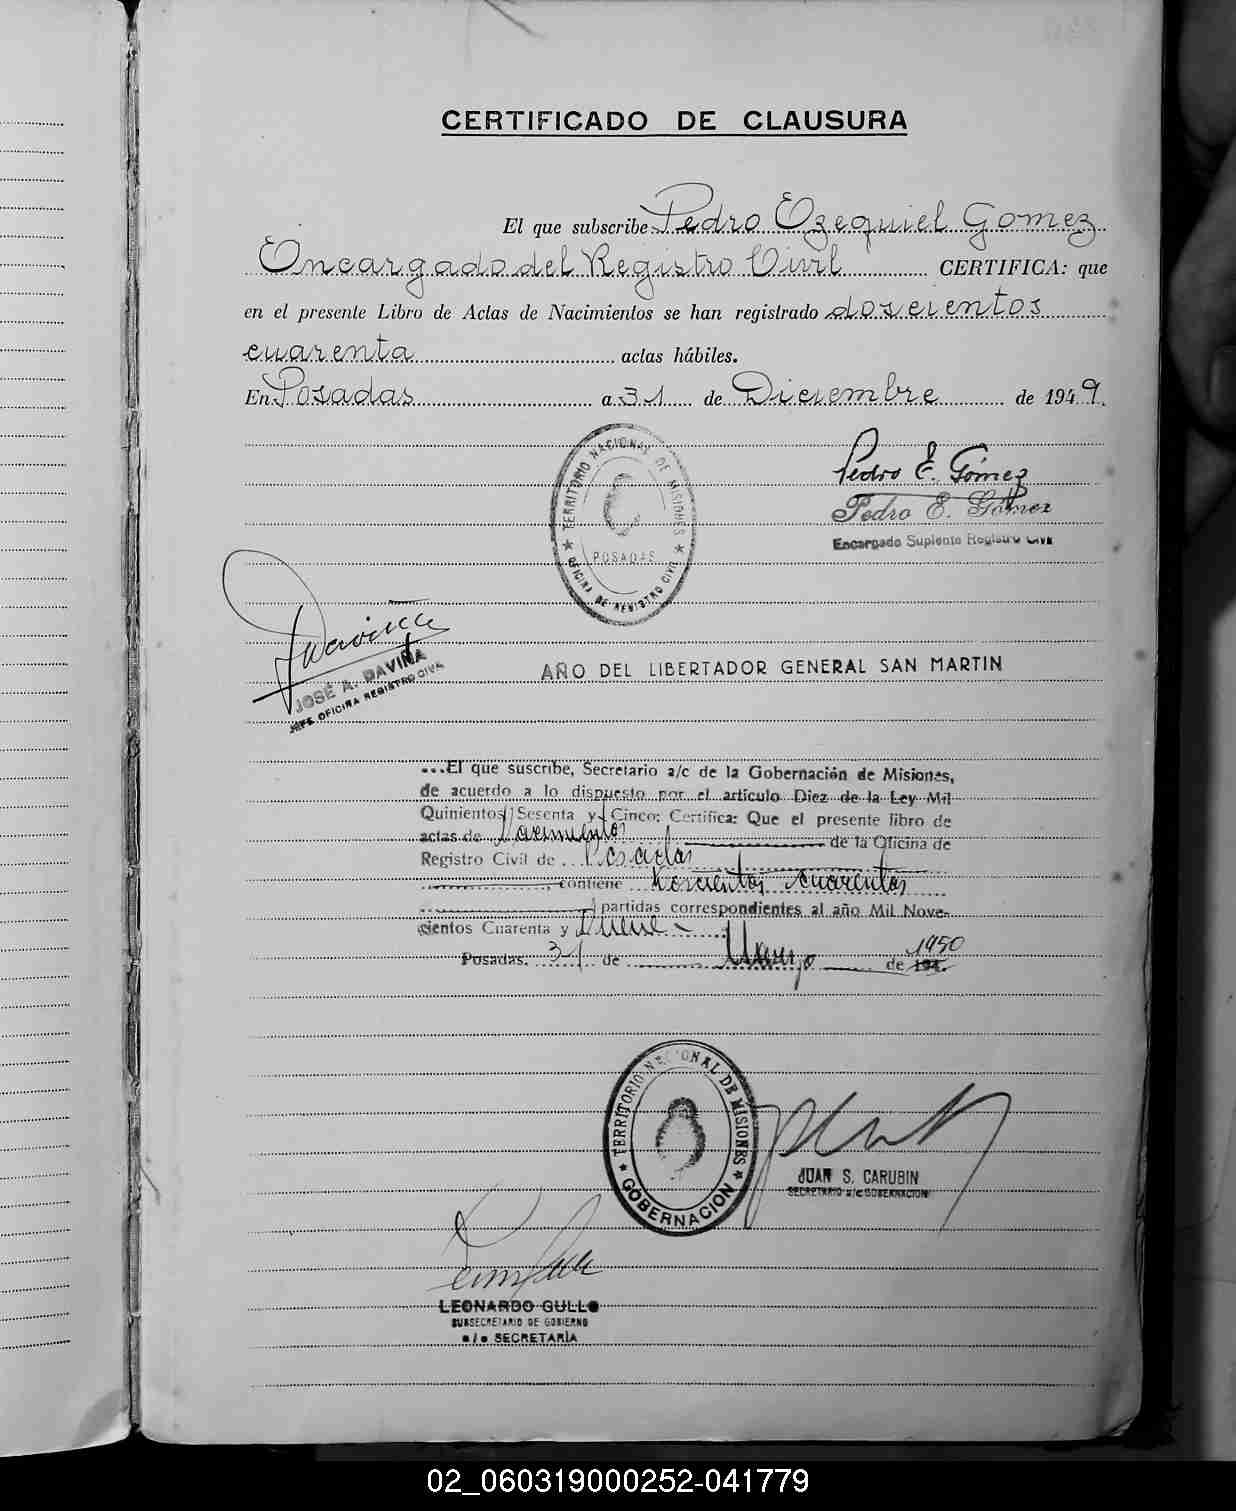 CERTIFICADO DE CLAUSURA
El que subscribe Pedro Ezequiel Gomez
Encargado del Registro Civil CERTIFICA: que
en el presente Libro de Actas de Nacimientos se han registrado doscientos
cuarenta actas hábiles.
En Posadas a 31 de Diciembre de 1949.
TERRITORIO NACIONAL DE MISIONES
POSADAS
OFICINA DE REGISTRO CIVIL
Pedro E. Gómez
Pedro E. Gómez
Encargado Suplente Registro Civil
Daviña
JOSÉ A. DAVIÑA
JEFE OFICINA REGISTRO CIVIL
AÑO DEL LIBERTADOR GENERAL SAN MARTIN
...El que suscribe, Secretario a/c de la Gobernación de Misiones,
de acuerdo a lo dispuesto por el artículo Diez de la Ley Mil
Quinientos Sesenta y Cinco; Certifica: Que el presente libro de
actas de Nacimientos de la Oficina de
Registro Civil de Posadas
contiene doscientos cuarentas
partidas correspondientes al año Mil Nove-
cientos Cuarenta y Nueve
Posadas, 31 de Marzo de 194. 1950
TERRITORIO NACIONAL DE MISIONES
GOBERNACION
JUAN S. CARUBIN
SECRETARIO a/c GOBERNACION
LEONARDO GULLO
SUBSECRETARIO DE GOBIERNO
a/c SECRETARÍA
02_060319000252-041779